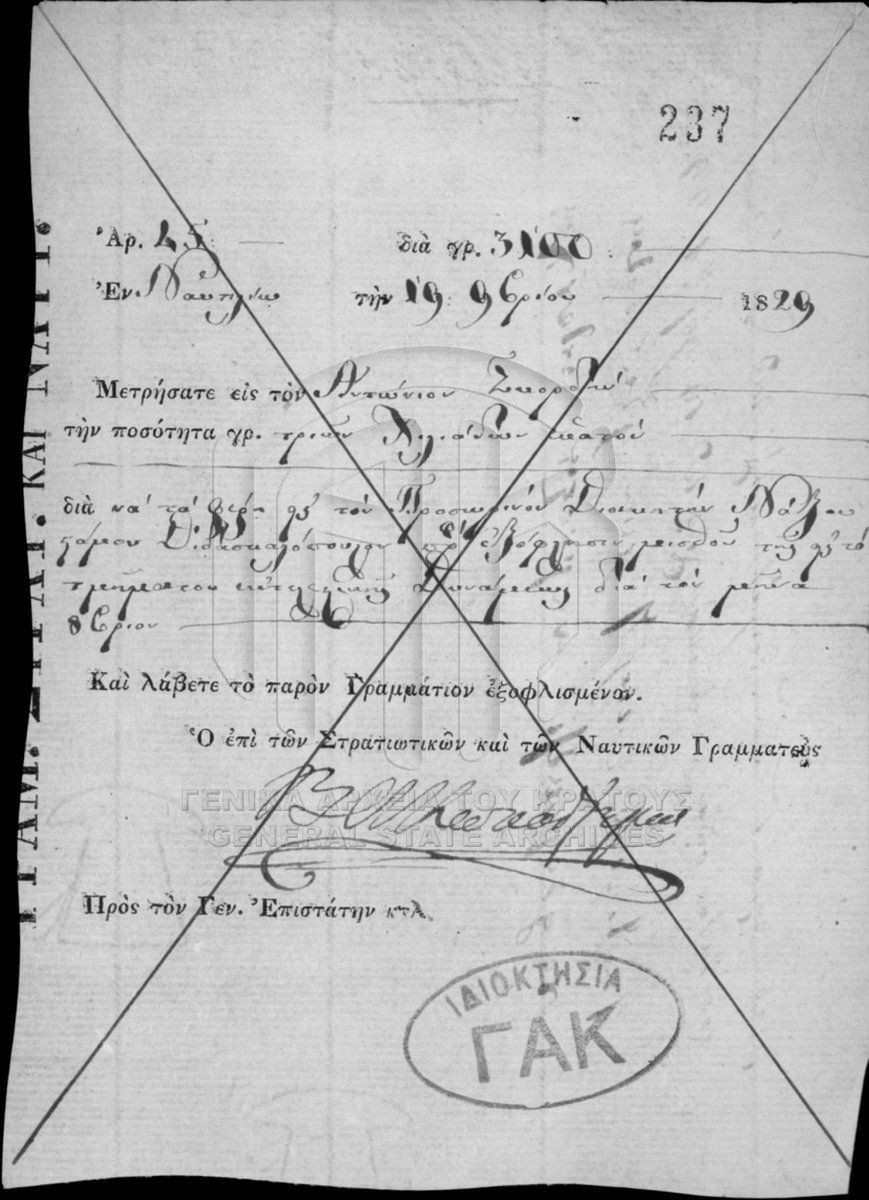 237
Ἀρ. 25 διὰ γρ. 3100
Ἐν Ναυπλίῳ τὴν 19 9βρίου 1829
Μετρήσατε εἰς τὸν Ἀντώνιον
τὴν ποσότητα γρ. τριῶν χιλιάδων ἑκατὸν
διὰ νὰ τὰ φέρῃ πρὸς τὸν Προσωρινὸν Διοικητὴν Νάξου
Διδασκαλόπουλον πρὸς ἐξόφλησιν μισθοῦ τῆς
Δυνάμεως διὰ τὸν μῆνα
8βριον
Καὶ λάβετε τὸ παρὸν Γραμμάτιον ἐξοφλισμένον.
Ὁ ἐπὶ τῶν Στρατιωτικῶν καὶ τῶν Ναυτικῶν Γραμματεὺς
Πρὸς τὸν Γεν. Ἐπιστάτην κτλ.
ΓΡΑΜ. ΣΤΡΑΤ. ΚΑΙ ΝΑΥΤ.
ΓΕΝΙΚΑ ΑΡΧΕΙΑ ΤΟΥ ΚΡΑΤΟΥΣ
GENERAL STATE ARCHIVES
ΙΔΙΟΚΤΗΣΙΑ
ΓΑΚ